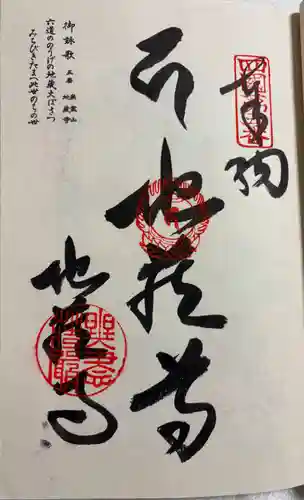 奉納
地蔵尊
地蔵寺
御詠歌 五番 無盡山 地蔵寺
六道ののうげの地蔵大ぼさつ
みちびきたまへ此世のちの世